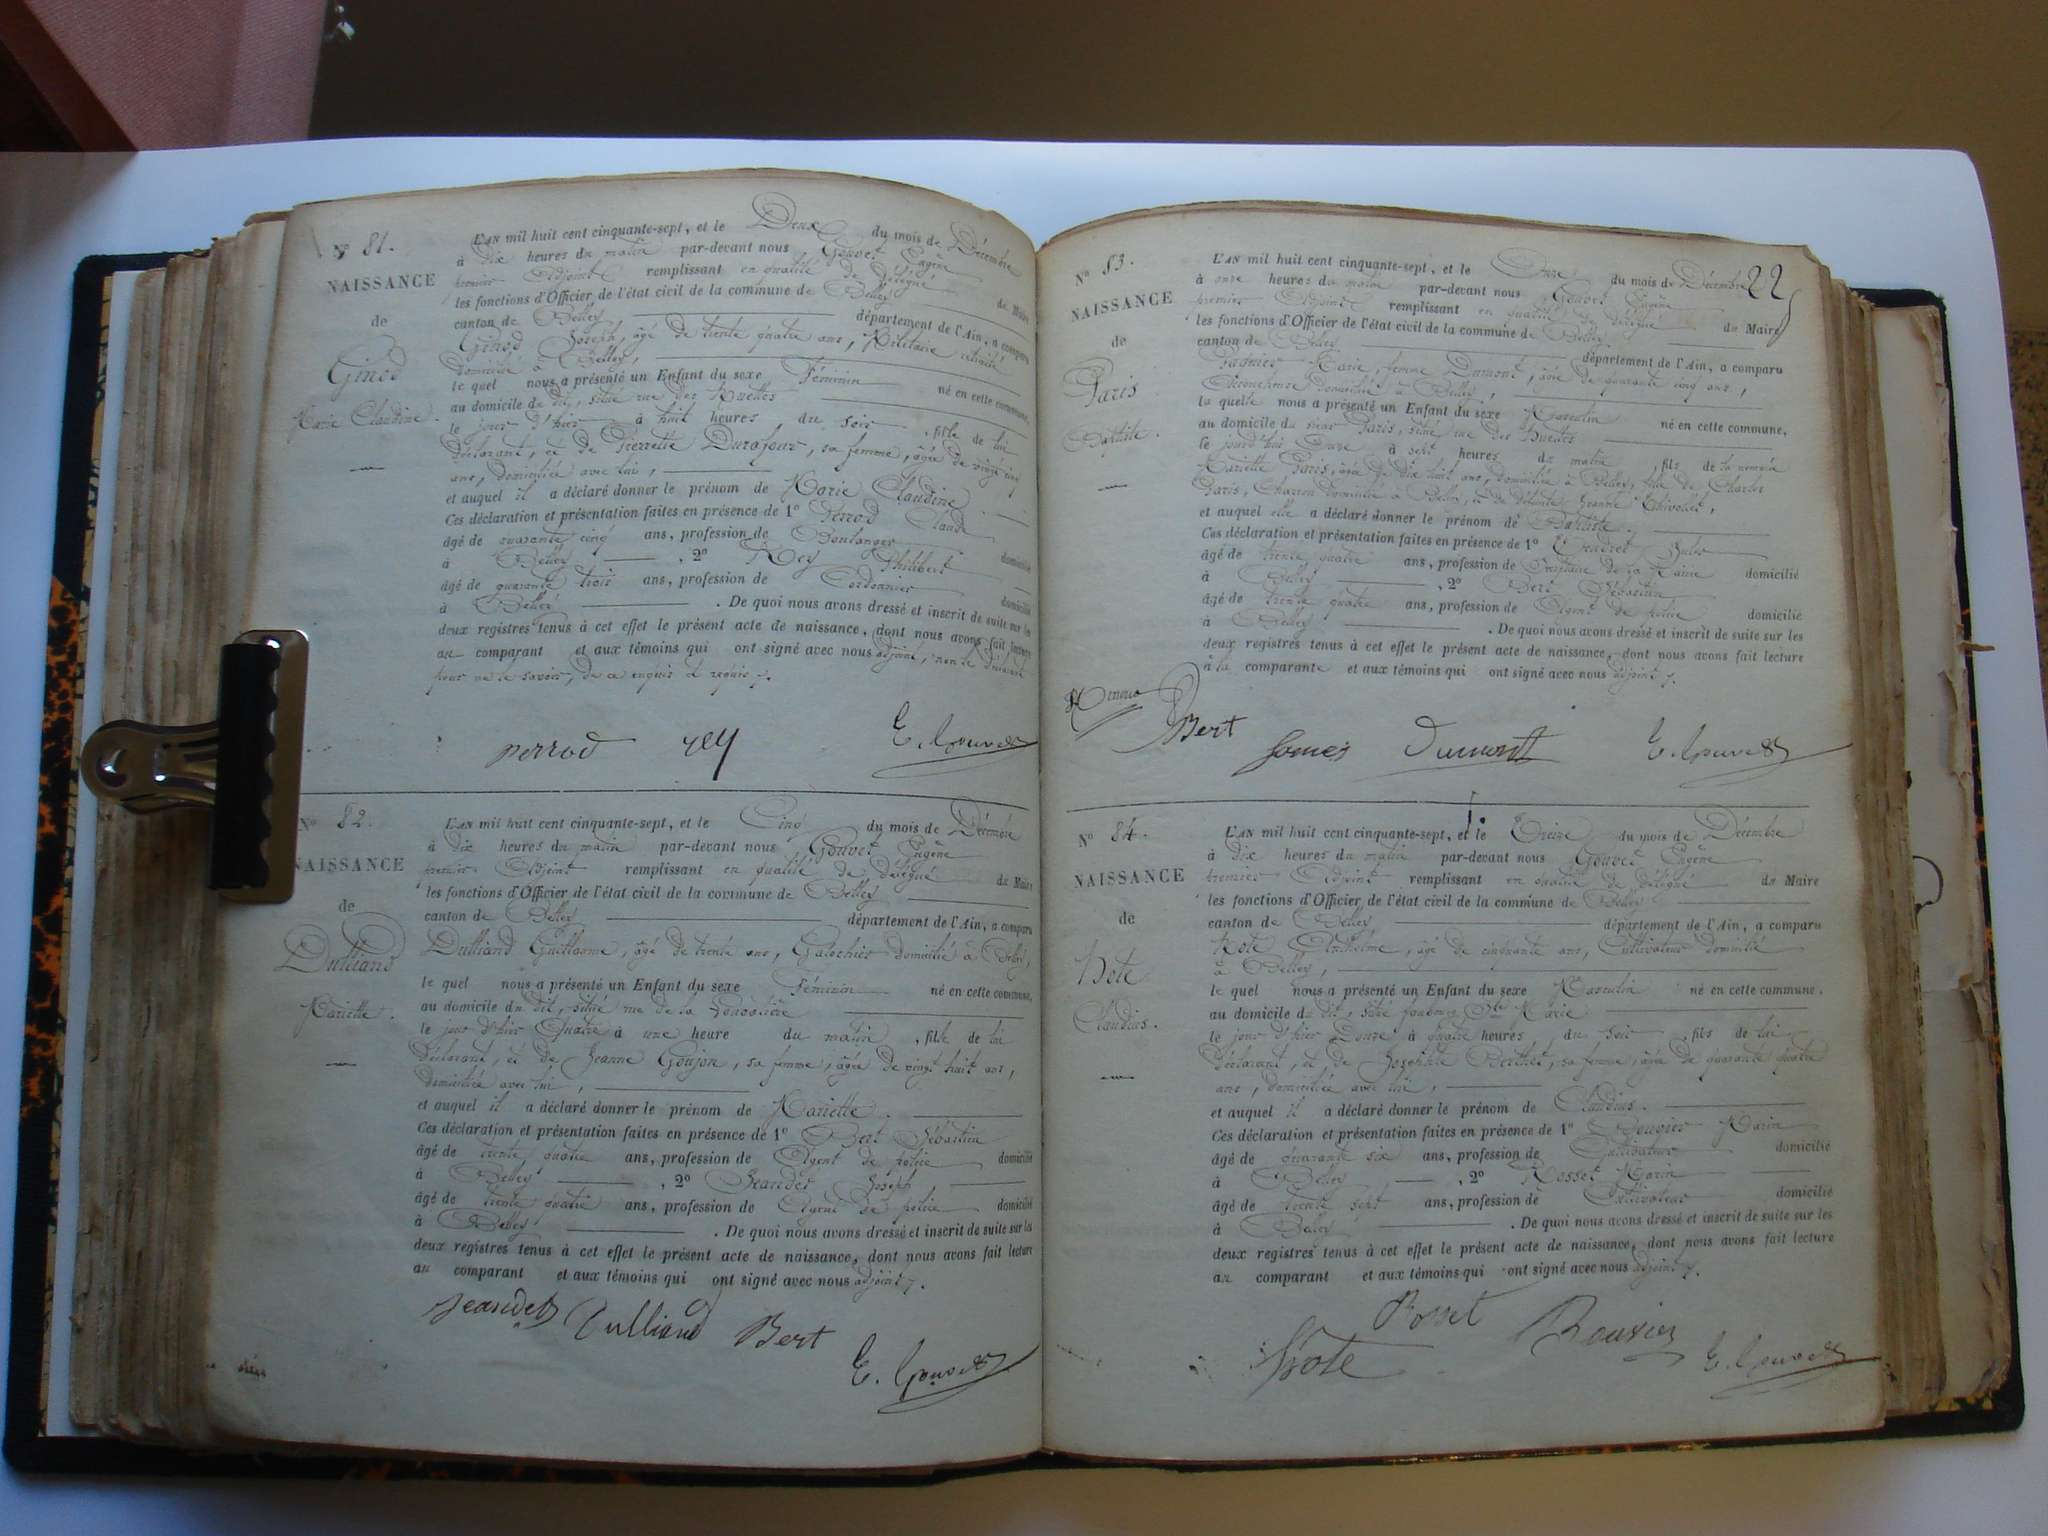 N° 81.
NAISSANCE
de
Ginod
Marie Claudine.
L'AN mil huit cent cinquante-sept, et le Deux du mois de Décembre
à dix heures du matin par-devant nous Gouvet Eugène
premier Adjoint remplissant en qualité de délégué du Maire
les fonctions d'Officier de l'état civil de la commune de Belley
canton de Belley, département de l'Ain, a comparu
Ginod Joseph, âgé de trente quatre ans, Militaire retraité
domicilié à Belley,
le quel nous a présenté un Enfant du sexe Féminin né en cette commune,
au domicile du dit, situé rue des Ruelles
le jour d'hier à huit heures du soir, fille de lui
déclarant, et de Pierrette Durafour, sa femme, âgée de vingt cinq
ans, domiciliée avec lui,
et auquel il a déclaré donner le prénom de Marie Claudine.
Ces déclaration et présentation faites en présence de 1° Perrod Claud
âgé de quarante cinq ans, profession de Boulanger domicilié
à Belley, 2° Rey Philibert
âgé de quarante trois ans, profession de Cordonnier domicilié
à Belley. De quoi nous avons dressé et inscrit de suite sur les
deux registres tenus à cet effet le présent acte de naissance, dont nous avons fait lecture
au comparant et aux témoins qui ont signé avec nous adjoint, non le déclarant
pour ne le savoir, de ce enquis et requis.
Perrod rey E. Gouvet
N° 82.
NAISSANCE
de
Dulliand
Mariette.
L'AN mil huit cent cinquante-sept, et le Cinq du mois de Décembre
à dix heures du matin par-devant nous Gouvet Eugène
premier Adjoint remplissant en qualité de délégué du Maire
les fonctions d'Officier de l'état civil de la commune de Belley
canton de Belley département de l'Ain, a comparu
Dulliand Guillaume, âgé de trente ans, Galochier domicilié à Belley,
le quel nous a présenté un Enfant du sexe Féminin né en cette commune,
au domicile du dit, située rue de la
le jour d'hier Quatre à une heure du matin, fille de lui
déclarant, et de Jeanne Goujon, sa femme, âgée de vingt huit ans,
domiciliée avec lui,
et auquel il a déclaré donner le prénom de Mariette.
Ces déclaration et présentation faites en présence de 1° Bert Sébastien
âgé de trente quatre ans, profession de Agent de police domicilié
à Belley, 2° Jeandet Joseph
âgé de trente quatre ans, profession de Agent de police domicilié
à Belley. De quoi nous avons dressé et inscrit de suite sur les
deux registres tenus à cet effet le présent acte de naissance, dont nous avons fait lecture
au comparant et aux témoins qui ont signé avec nous adjoint.
Jeandet Dulliand Bert
E. Gouvet
22
N° 83.
NAISSANCE
de
Paris
Baptiste.
L'AN mil huit cent cinquante-sept, et le Onze du mois de Décembre
à onze heures du matin par-devant nous Gouvet Eugène
premier Adjoint remplissant en qualité de délégué du Maire
les fonctions d'Officier de l'état civil de la commune de Belley
canton de Belley département de l'Ain, a comparu
Marie, femme Dumont, âgée de quarante cinq ans,
domiciliée à Belley,
la quelle nous a présenté un Enfant du sexe Masculin né en cette commune,
au domicile du sieur Paris, situé rue des Ruelles
le jourd'hui Onze à sept heures du matin, fils de la nommée
Mariette Paris, âgée de dix huit ans, domiciliée à Belley, fille de Charles
Paris, Charron domicilié à Belley, et de défunte Jeanne Thivollet,
et auquel elle a déclaré donner le prénom de Baptiste.
Ces déclaration et présentation faites en présence de 1°
âgé de trente quatre ans, profession de de la Mairie domicilié
à Belley, 2° Bert Sébastien
âgé de trente quatre ans, profession de Agent de police domicilié
à Belley. De quoi nous avons dressé et inscrit de suite sur les
deux registres tenus à cet effet le présent acte de naissance, dont nous avons fait lecture
à la comparante et aux témoins qui ont signé avec nous adjoint.
Bert Dumont E. Gouvet
N° 84.
NAISSANCE
de
Hote
Claudius.
L'AN mil huit cent cinquante-sept, et le Treize du mois de Décembre
à dix heures du matin par-devant nous Gouvet Eugène
premier Adjoint remplissant en qualité de délégué du Maire
les fonctions d'Officier de l'état civil de la commune de Belley
canton de Belley département de l'Ain, a comparu
Hote Anthelme, âgé de cinquante ans, Cultivateur domicilié
à Belley,
le quel nous a présenté un Enfant du sexe Masculin né en cette commune,
au domicile du dit, situé faubourg Ste Marie
le jour d'hier Douze à quatre heures du soir, fils de lui
déclarant, et de Josephte Berthet, sa femme, âgée de quarante quatre
ans, domiciliée avec lui,
et auquel il a déclaré donner le prénom de Claudius.
Ces déclaration et présentation faites en présence de 1° Bouvier Marin
âgé de quarante six ans, profession de Cultivateur domicilié
à Belley, 2° Rosset Marin
âgé de trente sept ans, profession de Cultivateur domicilié
à Belley. De quoi nous avons dressé et inscrit de suite sur les
deux registres tenus à cet effet le présent acte de naissance, dont nous avons fait lecture
au comparant et aux témoins qui ont signé avec nous adjoint.
Rosset Bouvier
Hote E. Gouvet